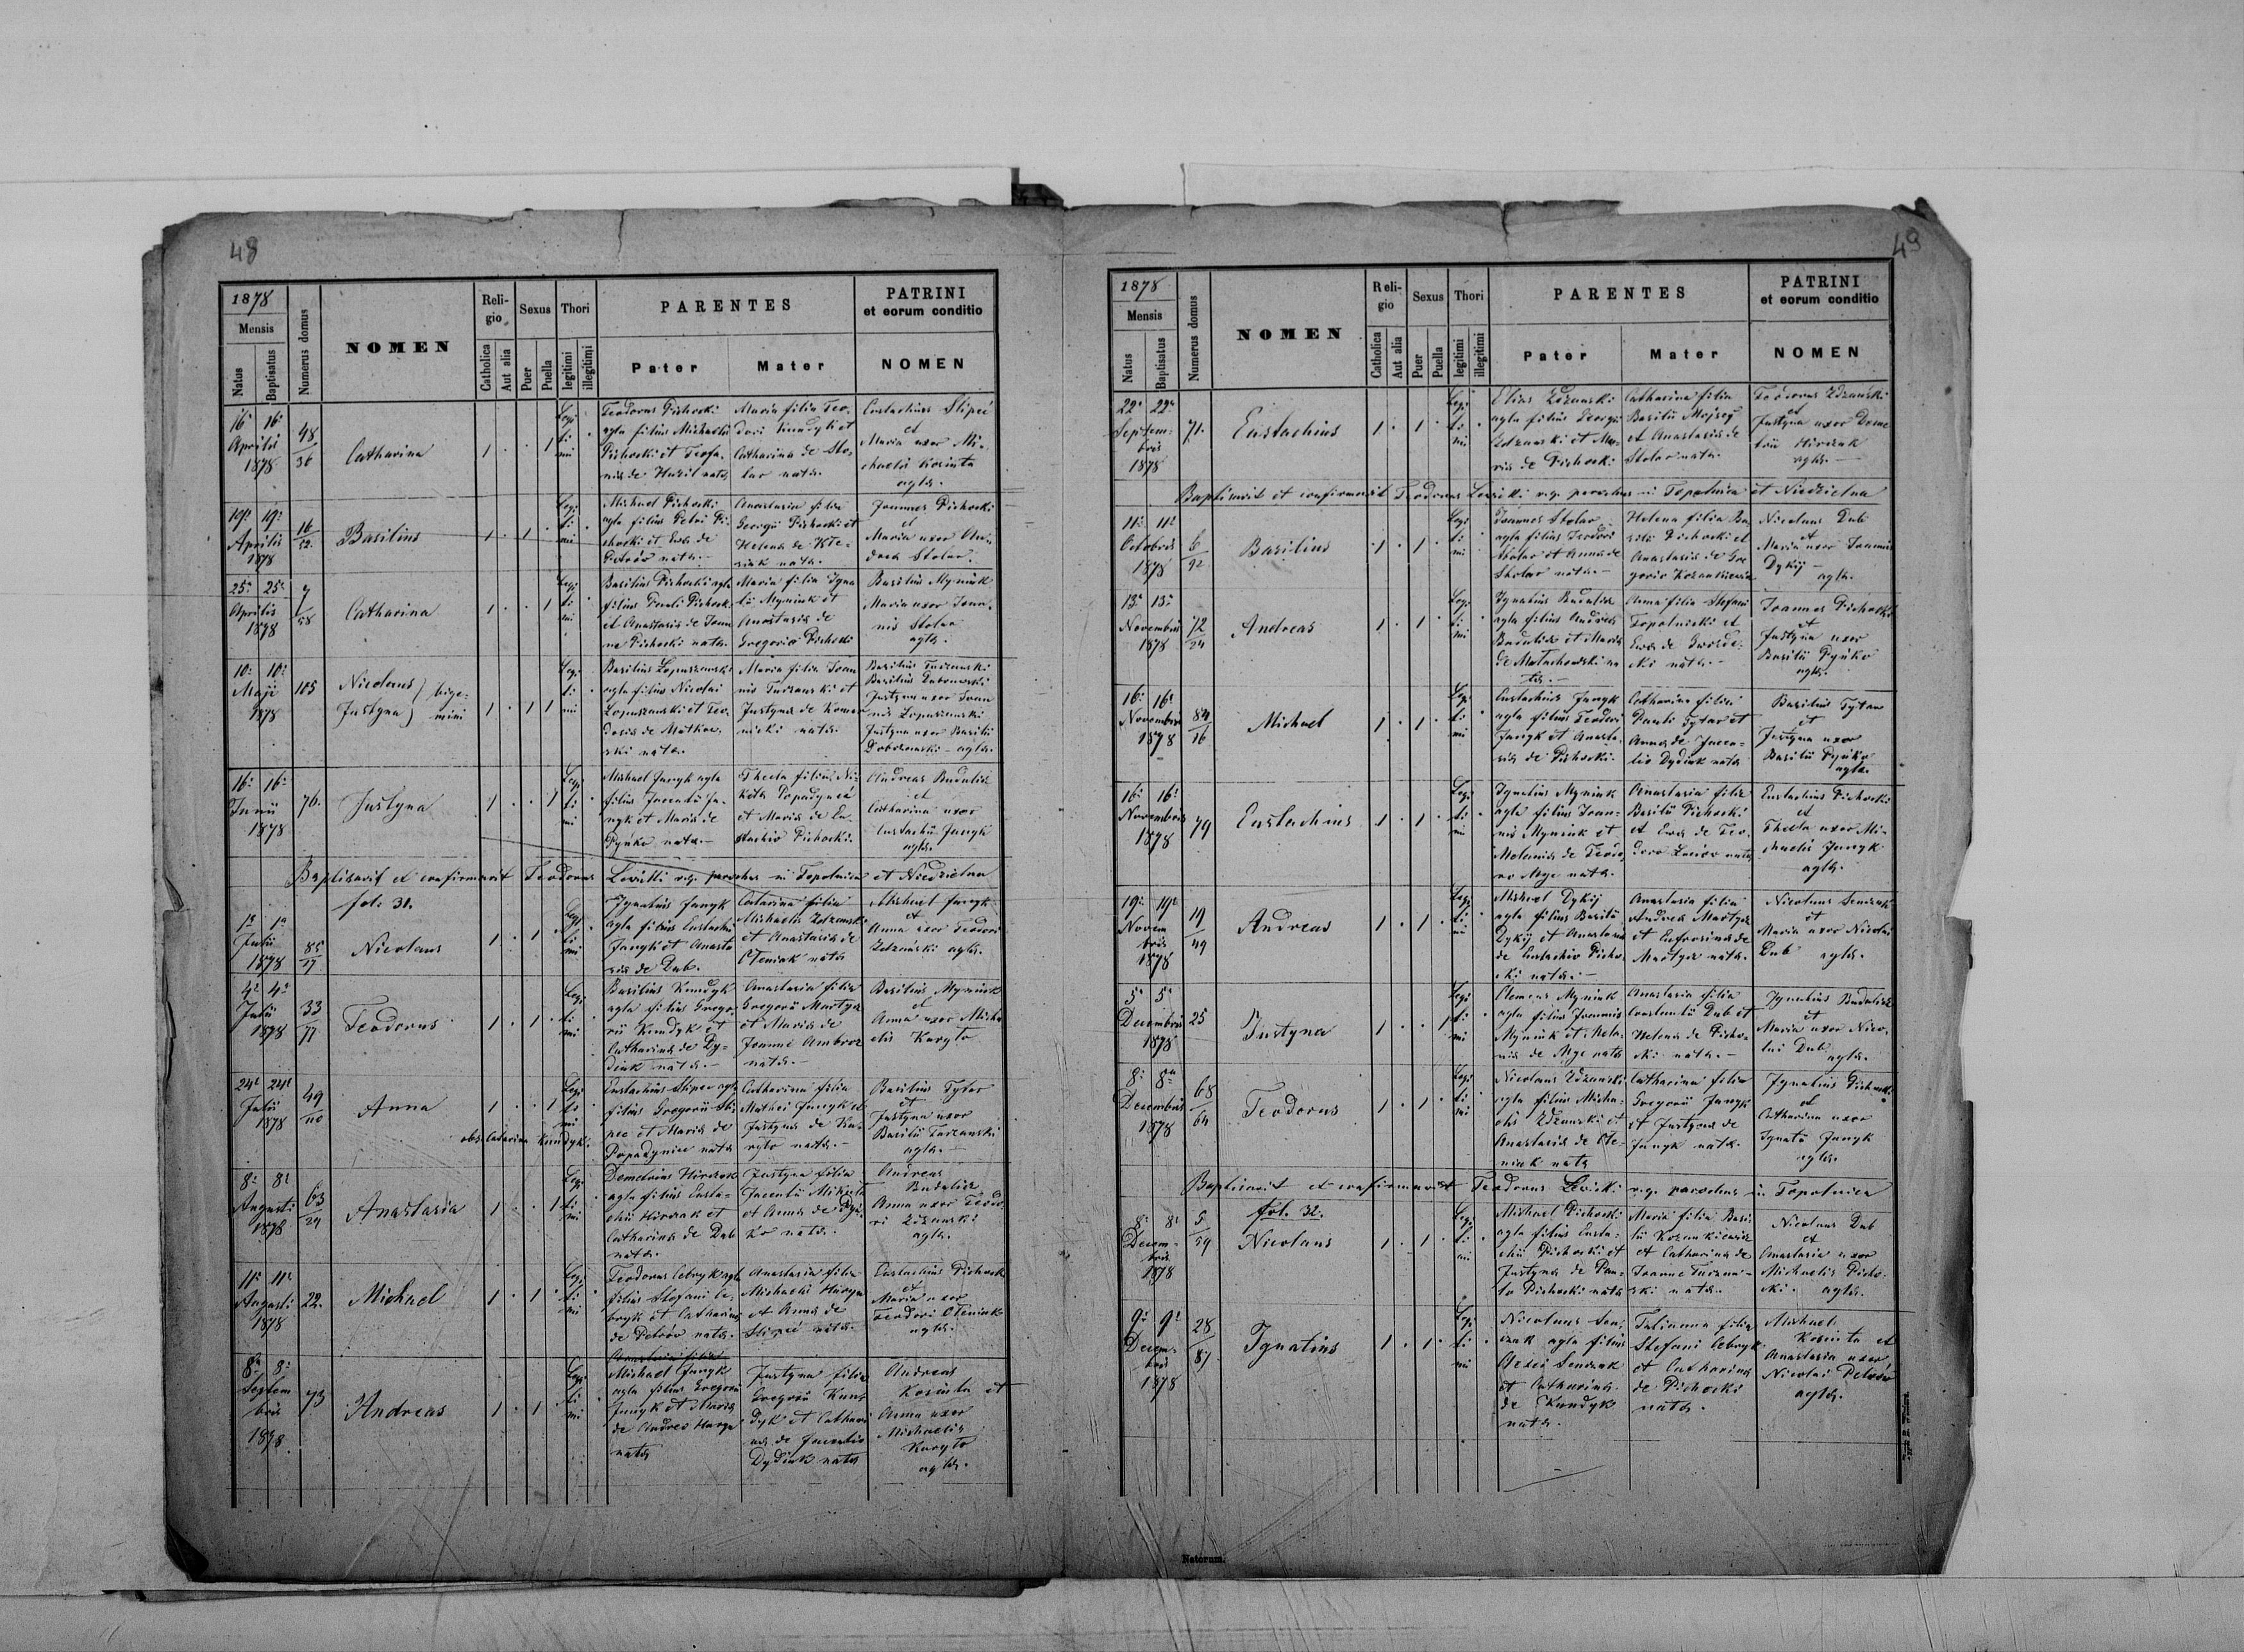 48
1878
Mensis
Natus
Baptisatus
Numerus domus
NOMEN
Reli-
gio
Catholica
Aut alia
Sexus
Puer
Puella
Thori
legitimi
illegitimi
PARENTES
Pater
Mater
PATRINI
et eorum conditio
NOMEN
16a 16a
Aprilis
1878
48
36
Catharina
1 . . 1
Legi
ti
mi
Teodorus Pichocki
agla filius Michaelis
Pichocki et Teofa-
nia de Huzil nata
Maria filia Teo-
dori Kundyk et
Catharina de Sto-
lar nata.
Eustachius Slipec
et
Maria uxor Mi-
chaelis Kosinta
aglæ.
19a 19a
Aprilis
1878
16
52.
Basilius
1 . 1 .
Legi
ti
mi
Michael Pichocki
agla filius Petri Pi-
chocki et Eva de
Petrów nata.
Anastasia filia
Georgii Pichocki et
Helena de
nata.
Joannes Pichocki
et
Maria uxor An-
drea Stolar.
25a 25a
Aprilis
1878
7
58
Catharina
1 . . 1
Legi
ti
mi
Basilius Pichocki agla
filius Pauli Pichock.
et Anastasia de Joan
ne Pichocki nata.
Maria filia Igna
tii Myniuk et
Anastasia de
Gregorio Pichocki
Basilius Myniuk
Maria uxor Joan-
nis Stolar
aglæ.
10a 10a
Maji
1878
105
Nicolaus
Justyna
bige-
mini
1 . 1 1
Legi
ti
mi
Basilius Łopuszanski
agla filius Nicolai
Łopuszanski et Teo-
dosia de Matkow-
ski nata.
Maria filia Joan
nis Turzanski et
Justyna de Komar
nicki nata.
Basilius Turzanski
Basilius Dubrowski
Justyna uxor Joan
nis Łopuszanski
Justyna uxor Basilii
Dobrzanski - aglæ.
16a 16a
Junii
1878
76.
Justyna
1 . . 1
Legi
ti
mi
Michael Janyk agla
filius Jacentii Ja-
nyk et Maria de
Pyńko nata.
Thecla filia Ni-
kita Popadyneć
et Maria de Eu-
stachio Pichocki.
Andreas Budulick
et
Catharina uxor
Eustachii Janyk
aglæ.
Baptisavit et confirmavit Teodorus Lewicki r.g. parochus in Topolnica et Niedzielna
fol. 31.
1a 1a
Julii
1878
85
17
Nicolaus
1 . 1 .
Legi
ti
mi
Ignatius Janyk
agla filius Eustachii
Janyk et Anasta
sia de Dub.
Catarina filia
Michaelis Zdzanski
et Anastasia de
Oleniak nata
Michael Janyk
et
Anna uxor Teodori
Zdzanski aglæ.
4a 4a
Julii
1878
33
77
Teodorus
1 . 1 .
Legi
ti
mi
Basilius Kundyk
agla filius Grego-
rii Kundyk et
Catharina de Dy-
diuk nata.
Anastasia filia
Gregorii Martyn
et Maria de
Joanne Ambroz
nata.
Basilius Myniuk
et
Anna uxor Micha
elis Kuryło
24a 24a
Julii
1878
49
110
Anna
1 . . 1
Legi
ti
mi
obs. Catarina Kundyk.
Eustachius Slipec agla
filius Gregorii Sli-
pec et Maria de
Popadyniec nata
Catharina filia
Mathei Janyk et
Justyna de Ku-
ryło nata.
Basilius Tytar
et
Justyna uxor
Basilii Turzanski
aglæ.
8a 8a
Augusti
1878
63
24
Anastasia
1 . . 1
Legi
ti
mi
Demetrius Hirczak
agla filius Eusta-
chii Hirczak et
Catharina de Dub
nata.
Justyna filia
Jacentii Mikieta
et Anna de Pyń-
ko nata.
Andreas
Budulick
Anna uxor Teodo-
ri Zdzanski
aglæ.
11a 11a
Augusti
1878
22.
Michael
1 . 1 .
Legi
ti
mi
Teodorus Cebryk agla
filius Stefani Ce-
bryk et Catharina
de Petrów nata.
Anastasia filia
Michaelis Harga
et Anna de
Slipec nata.
Eustachius Pichocki
et
Maria uxor
Teodori Oleniak
aglæ.
8a 8a
Septem
bris
1878.
73
Andreas
1 . 1 .
Legi
ti
mi
Anastasia filia
Michael Janyk
agla filius Gregorii
Janyk et Maria
de Andrea Harga
nata
Justyna filia
Gregorii Kun-
dyk et Cathari
na de Jacentio
Dydiuk nata
Andreas
Kosinta et
Anna uxor
Michaelis
Kuryło
aglæ.
49
1878
Mensis
Natus
Baptisatus
Numerus domus
NOMEN
Reli-
gio
Catholica
Aut alia
Sexus
Puer
Puella
Thori
legitimi
illegitimi
PARENTES
Pater
Mater
PATRINI
et eorum conditio
NOMEN
22a 22a
Septem-
bris
1878
71.
Eustachius
1 . 1 .
Legi
ti
mi
Elias Zdzanski
agla filius Georgii
Zdzanski et Ma-
ria de Pichocki
Catharina filia
Basilii Mojsej
et Anastasia de
Stolar nata.
Teodorus Zdzanski
et
Justyna uxor Deme
trii Hirczak
aglæ.
Baptisavit et confirmavit Teodorus Lewicki r.g. parochus in Topolnica et Niedzielna
11a 11a
Octobris
1878
6
92
Basilius
1 . 1 .
Legi
ti
mi
Joannes Stolar
agla filius Teodori
Stolar et Anna de
Stolar nata.
Helena filia Ba
silii Pichocki et
Anastasia de Gre
gorio Kozankiewicz
Nicolaus Dub
et
Maria uxor Joannis
Dykij
aglæ.
13a 13a
Novembris
1878
72
24
Andreas
1 . 1 .
Legi
ti
mi
Ignatius Budulick
agla filius Andrea
Budulick et Maria
de Małachowski na
ta.
Anna filia Stefani
Topolnicki et
Eva de Gwozde-
cki nata.
Joannes Pichocki
et
Justyna uxor
Basilii Pyńko
aglæ.
16a 16a
Novembris
1878
84
16
Michael
1 . 1 .
Legi
ti
mi
Eustachius Janyk
agla filius Teodori
Janyk et Anasta-
sia de Pichocki.
Catharina filia
Pauli Tytar et
Anna de Jacen-
tio Dydiuk nata
Basilius Tytar
et
Justyna uxor
Basilii Pyńko
aglæ.
16a 16a
Novembris
1878
79
Eustachius
1 . 1 .
Legi
ti
mi
Ignatius Myniuk
agla filius Joan-
nis Myniuk et
Melania de Teodo
ro Mye nata.
Anastasia filia
Basilii Pichocki
et Eva de Teo-
doro nata
Eustachius Pichocki
et
Thecla uxor Mi-
chaelis Janyk
aglæ.
19a 19a
Novem
bris
1878
19
49
Andreas
1 . 1 .
Legi
ti
mi
Michael Dykij
agla filius Basilii
Dykij et Anastasia
de Eustachio Picho-
cki nata.
Anastasia filia
Andrea Martyn
et Eufrosina de
Martyn nata.
Nicolaus Senczak
et
Maria uxor Nicolai
Dub aglæ.
5a 5a
Decembris
1878
25
Justyna
1 . . 1
Legi
ti
mi
Clemens Myniuk
agla filius Joannis
Myniuk et Mela-
nia de Mye nata
Anastasia filia
Constantii Dub et
Helena de Picho-
cki nata.
Ignatius Budulick
et
Maria uxor Nico-
lai Dub
aglæ.
8a 8a
Decembris
1878
68
64
Teodorus
1 . 1 .
Legi
ti
mi
Nicolaus Zdzanski
agla filius Micha-
elis Zdzanski et
Anastasia de Ole-
niak nata
Catharina filia
Gregorii Janyk
et Justyna de
Janyk nata.
Ignatius Pichocki
et
Catharina uxor
Ignatii Janyk
aglæ.
Baptisavit et confirmavit Teodorus Lewicki r.g. parochus in Topolnica
fol. 32.
8a 8a
Decem-
bris
1878
5
59
Nicolaus
1 . 1 .
Legi
ti
mi
Michael Pichocki
agla filius Eusta-
chii Pichocki et
Justyna de Pau-
lo Pichocki nata
Maria filia Basi-
lii Kozankiewicz
et Catharina de
Joanne Turzan-
ski nata.
Nicolaus Dub
et
Anastasia uxor
Michaelis Picho-
cki. aglæ.
9a 9a
Decem-
bris
1878
28
87
Ignatius
1 . 1 .
Legi
ti
mi
Nicolaus Sen-
czak agla filius
Senczak
et Catharina
de Kundyk
nata.
Tatianna filia
Stefani Cebryk
et Catharina
de Pichocki
nata.
Michael
Kosinta et
Anastasia uxor
Nicolai Petrów
aglæ.
Natorum.